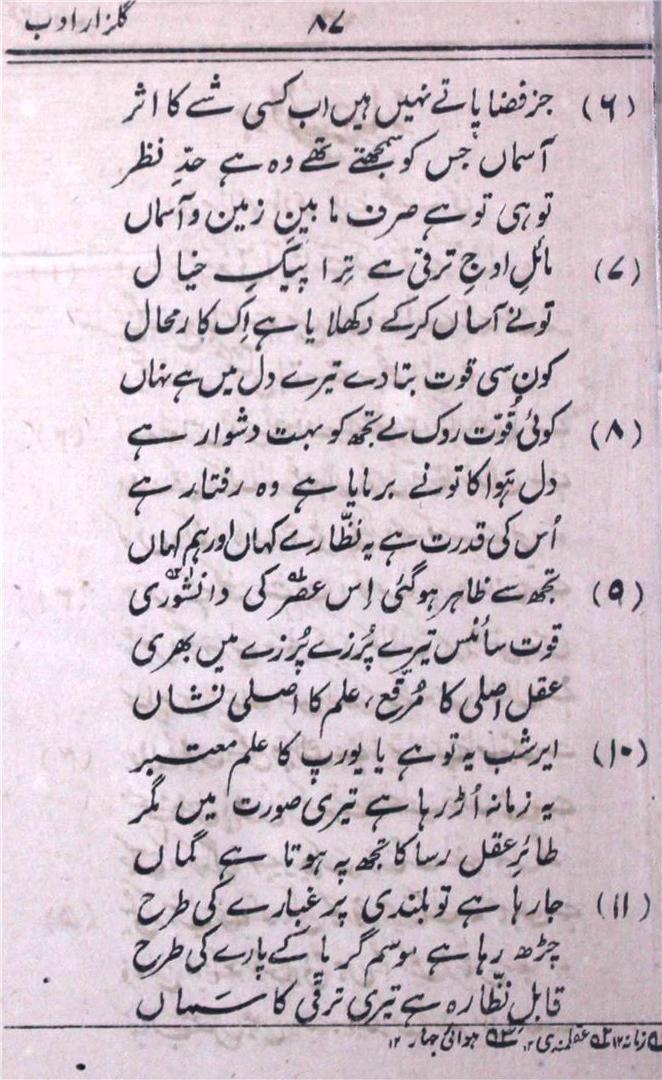 گلزار ادب
۸۷
(۶) جز فضا پاتے نہیں ہیں اب کسی شے کا اثر
آسماں جس کو سمجھتے تھے وہ ہے حدِّ نظر
تو ہی تو ہے صرف مابینِ زمین و آسماں
(۷) مائلِ اوجِ ترقی ہے تِرا پیکِ خیال
تونے آساں کرکے دکھلایا ہے اِک کارِ محال
کون سی قوت بتا دے تیرے دل میں ہے نہاں
(۸) کوئی قُوّت روک لے تجھ کو بہت دشوار ہے
دل ہَوا کا تونے برمایا ہے وہ رفتار ہے
اُس کی قدرت ہے یہ نظّارے کہاں اور ہم کہاں
(۹) تجھ سے ظاہر ہو گئی اِس عصر کی دانشوَری
قوت سائنس تیرے پُرزے پُرزے میں بھری
عقل اصلی کا مُرقّع، علم کا اصلی نشاں
(۱۰) ایرشپ یہ تو ہے یا یورپ کا علم معتبر
یہ زمانہ اُڑ رہا ہے تیری صورت میں مگر
طائرِ عقل رسا کا تجھ پہ ہوتا ہے گماں
(۱۱) جا رہا ہے تو بلندی پر غبارے کی طرح
چڑھ رہا ہے موسمِ گرما کے پارے کی طرح
قابلِ نظّارہ ہے تیری ترقّی کا سَماں
زمانہ ۱۲ عقلمندی ۱۲ ہوائی جہاز ۱۲